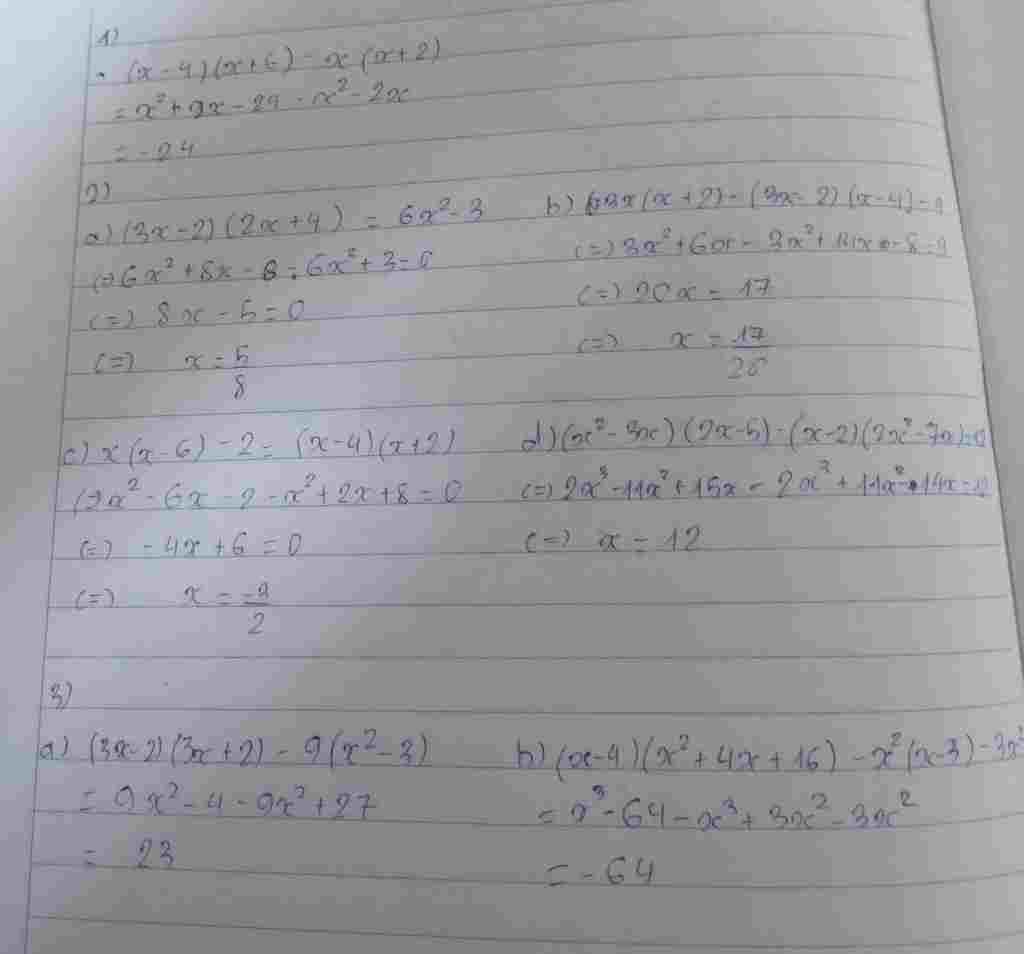 1)
(x - 4)(x + 6) - x(x + 2)
= x² + 2x - 24 - x² - 2x
= -24
2)
a) (3x - 2)(2x + 4) = 6x² - 3
(=) 6x² + 8x - 8 - 6x² + 3 = 0
(=) 8x - 5 = 0
(=) x = 5/8
b) 3x(x + 2) - (3x - 2)(x - 4) = 9
(=) 3x² + 6x - 3x² + 14x - 8 = 9
(=) 20x = 17
(=) x = 17/20
c) x(x - 6) - 2 = (x - 4)(x + 2)
(=) x² - 6x - 2 - x² + 2x + 8 = 0
(=) -4x + 6 = 0
(=) x =
d) (x² - 3x)(2x - 5) - (x - 2)(2x² - 7x) = 12
(=) 2x³ - 11x² + 15x - 2x³ + 11x² - 14x = 12
(=) x = 12
3)
a) (3x - 2)(3x + 2) - 9(x² - 3)
= 9x² - 4 - 9x² + 27
= 23
b) (x - 4)(x² + 4x + 16) - x²(x - 3) - 3x²
= x³ - 64 - x³ + 3x² - 3x²
= -64